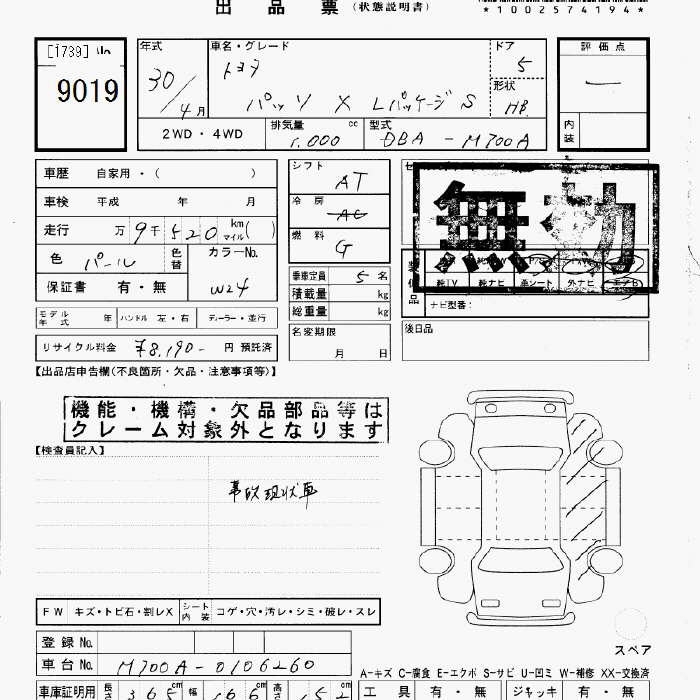 出 品 票 (状態説明書)
*1002574194*
[1739]
9019
年式 30/4月
車名・グレード トヨタ
パッソ X Lパッケージ S
ドア 5
形状 HB
評価点 —
内装
2WD・4WD
排気量 1,000 cc
型式 DBA-M700A
車歴 自家用・( )
車検 平成 年 月
走行 万 9千 520 km マイル ( )
色 パール 色替 カラーNo. W24
保証書 有・無
シフト AT
冷房 AC
燃料 G
乗車定員 5 名
積載量 kg
総重量 kg
名変期限 月 日
無効
純TV 純ナビ 革シート 外ナビ
ナビ型番:
後日品
モデル年式 年 ハンドル 左・右 ディーラー・並行
リサイクル料金 ¥8,190- 円 預託済
【出品店申告欄(不良箇所・欠品・注意事項等)】
機能・機構・欠品部品等は
クレーム対象外となります
【検査員記入】
事故現状車
FW キズ・トビ石・割レX シート内装 コゲ・穴・汚レ・シミ・破レ・スレ
登録 No.
車台 No. M700A-0106260
スペア
A-キズ C-腐食 E-エクボ S-サビ U-凹ミ W-補修 XX-交換済
車庫証明用 長さ 365 cm 幅 166 cm 高さ 152 cm
工具 有・無 ジャッキ 有・無